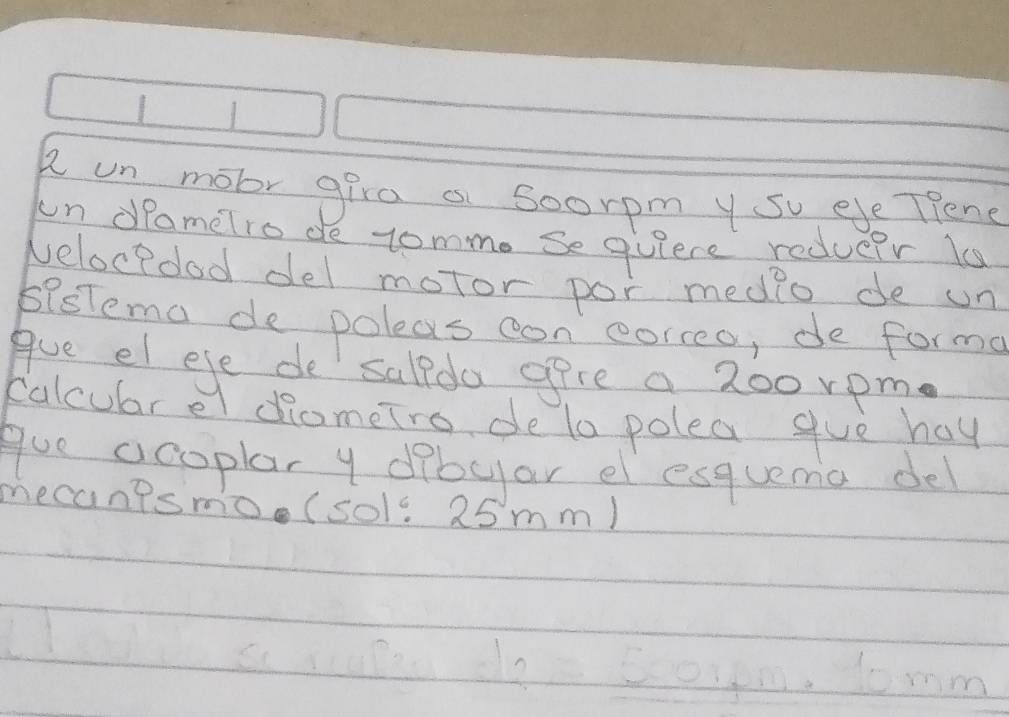 2 un motor gira a 500rpm y su eje Tiene
un diameTro de 10mm. Se quiere reducir la
velocidad del moTor por medio de un
sisTema de poleas con correa, de forma
que el eje de salida gire a 200 rpm.
Calcular el diameTro de la polea que hay
que acoplar y dibujar el esquema del
mecanismo. (sol: 25mm)
d2 = 500rpm. 10mm